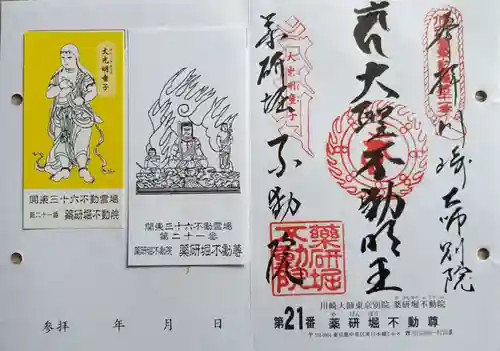 大光明童子
関東三十六不動霊場
第二十一番 薬研堀不動院
関東三十六不動霊場
第二十一番
薬研堀不動院 薬研堀不動尊
参拝 年 月 日
奉拝
川崎大師別院
大聖不動明王
大光明童子
薬研堀不動院
薬研堀
不動院
川崎大師東京別院 薬研堀不動院
やげんぼり
第21番 薬研堀不動尊